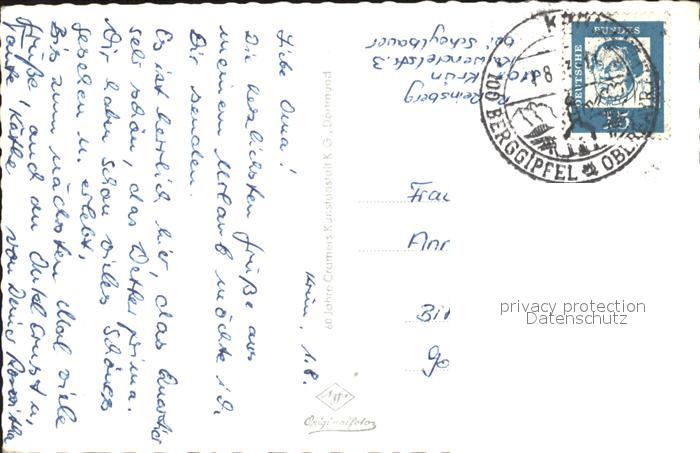 Krün, 1.8.
Liebe Oma!
Die herzlichsten Grüße aus
meinem Urlaub möchte ich
Dir senden.
Es ist herrlich hier, das Quartier
sehr schön, das Wetter prima.
Wir haben schon vieles Schönes
gesehen u. erlebt.
Bis zum nächsten Mal viele
Grüße auch an Onkel Ernst u.
Tante Käthe von Deiner
60 Jahre Cramers Kunstanstalt K.G., Dortmund
Agfa
Originalfoto
R. Reinsberg
Krün
Karwendelstr. 3
bei
DEUTSCHE
BUNDES
15
1.8.
1900 BERGGIPFEL
OBERBAYERN
Frau
Ann
Bi
privacy protection
Datenschutz